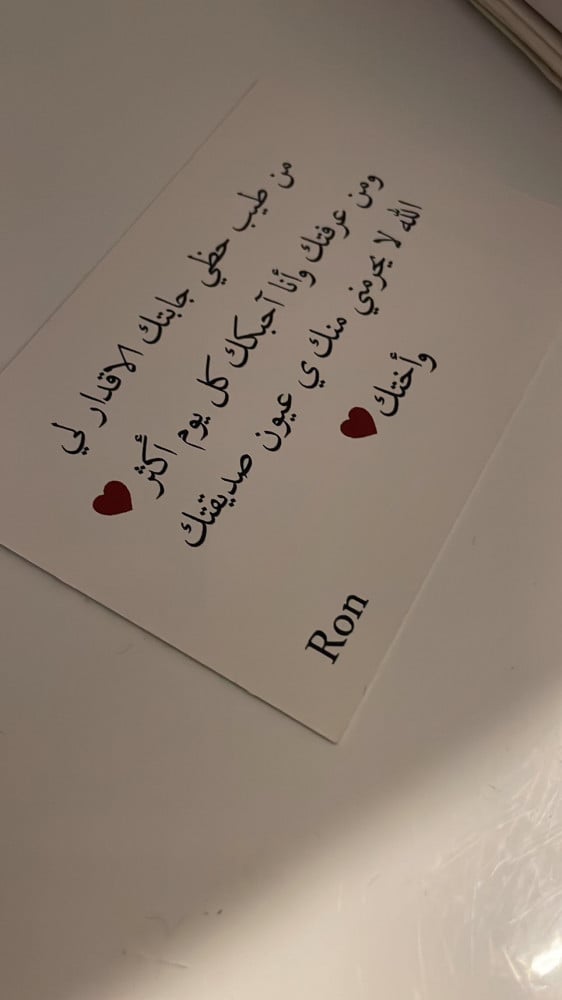 من طيب حظي جابتك الاقدار لي
ومن عرفتك وأنا آحبكك كل يوم أكثر ♥
الله لا يحرمني منك ي عيون صديقتك
وأختك ♥
Ron